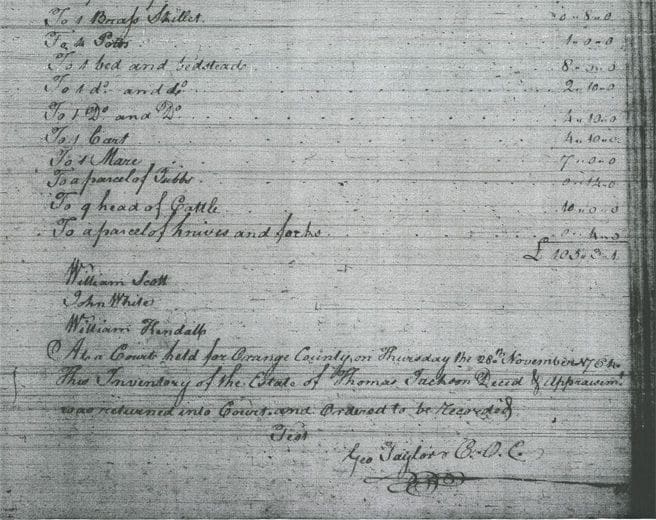 To 1 Brass Skillet. 0 - 8 - 0
To 4 Potts 1 - 0 - 0
To 1 bed and bedstead 8 - 0 - 0
To 1 do. and do. 2 - 10 - 0
To 1 Do. and Do. 4 - 10 - 0
To 1 Cart 4 - 10 - 0
To 1 Mare 7 - 0 - 0
To a parcel of Tubbs 0 - 14 - 0
To 9 head of Cattle 10 - 0 - 0
To a parcel of knives and forks 0 - 4 - 0
£ 105 - 3 - 1
William Scott
John White
William Kendall
At a Court held for Orange County, on Thursday the 28th November
This Inventory of the Estate of Thomas Jackson Decd & Appraismt
was returned into Court and Ordered to be recorded
Test
Geo Taylor C. O. C.